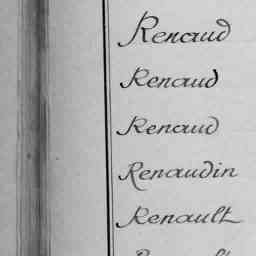 Renaud
Renaud
Renaud
Renaudin
Renault